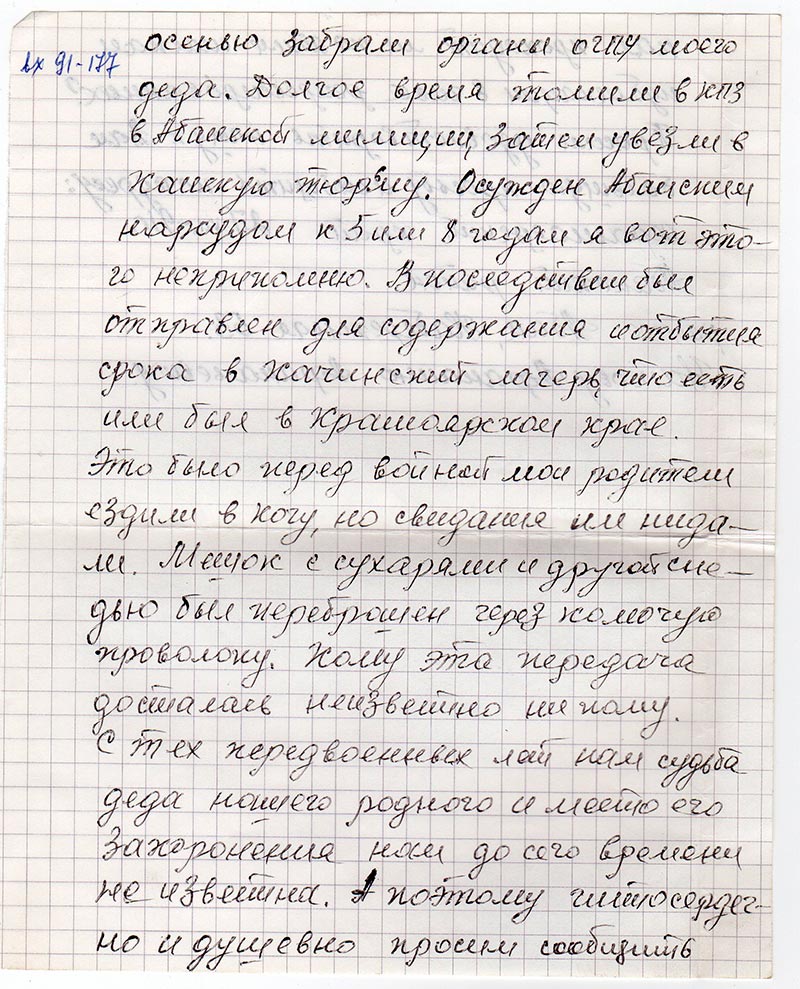 вх 91-177
осенью забрали органы ОГПУ моего
деда. Долгое время томили в КПЗ
в Абанской милиции, затем увезли в
Канскую тюрьму. Осужден Абанским
нарсудом к 5 или 8 годам я вот это-
го неприпомню. В последствии был
отправлен для содержания и отбытия
срока в Качинский лагерь, что есть
или был в Красноярском крае.
Это было перед войной мои родители
ездили в Кочу, но свидания им нида-
ли. Мешок с сухарями и другой сне-
дью был переброшен через колючую
проволоку. Кому эта передача
досталась неизвестно ни кому.
С тех передвоенных лет нам судьба
деда нашего родного и место его
захоронения нам до сего времени
не известна. А поэтому чистосердеч-
но и душевно просим сообщить